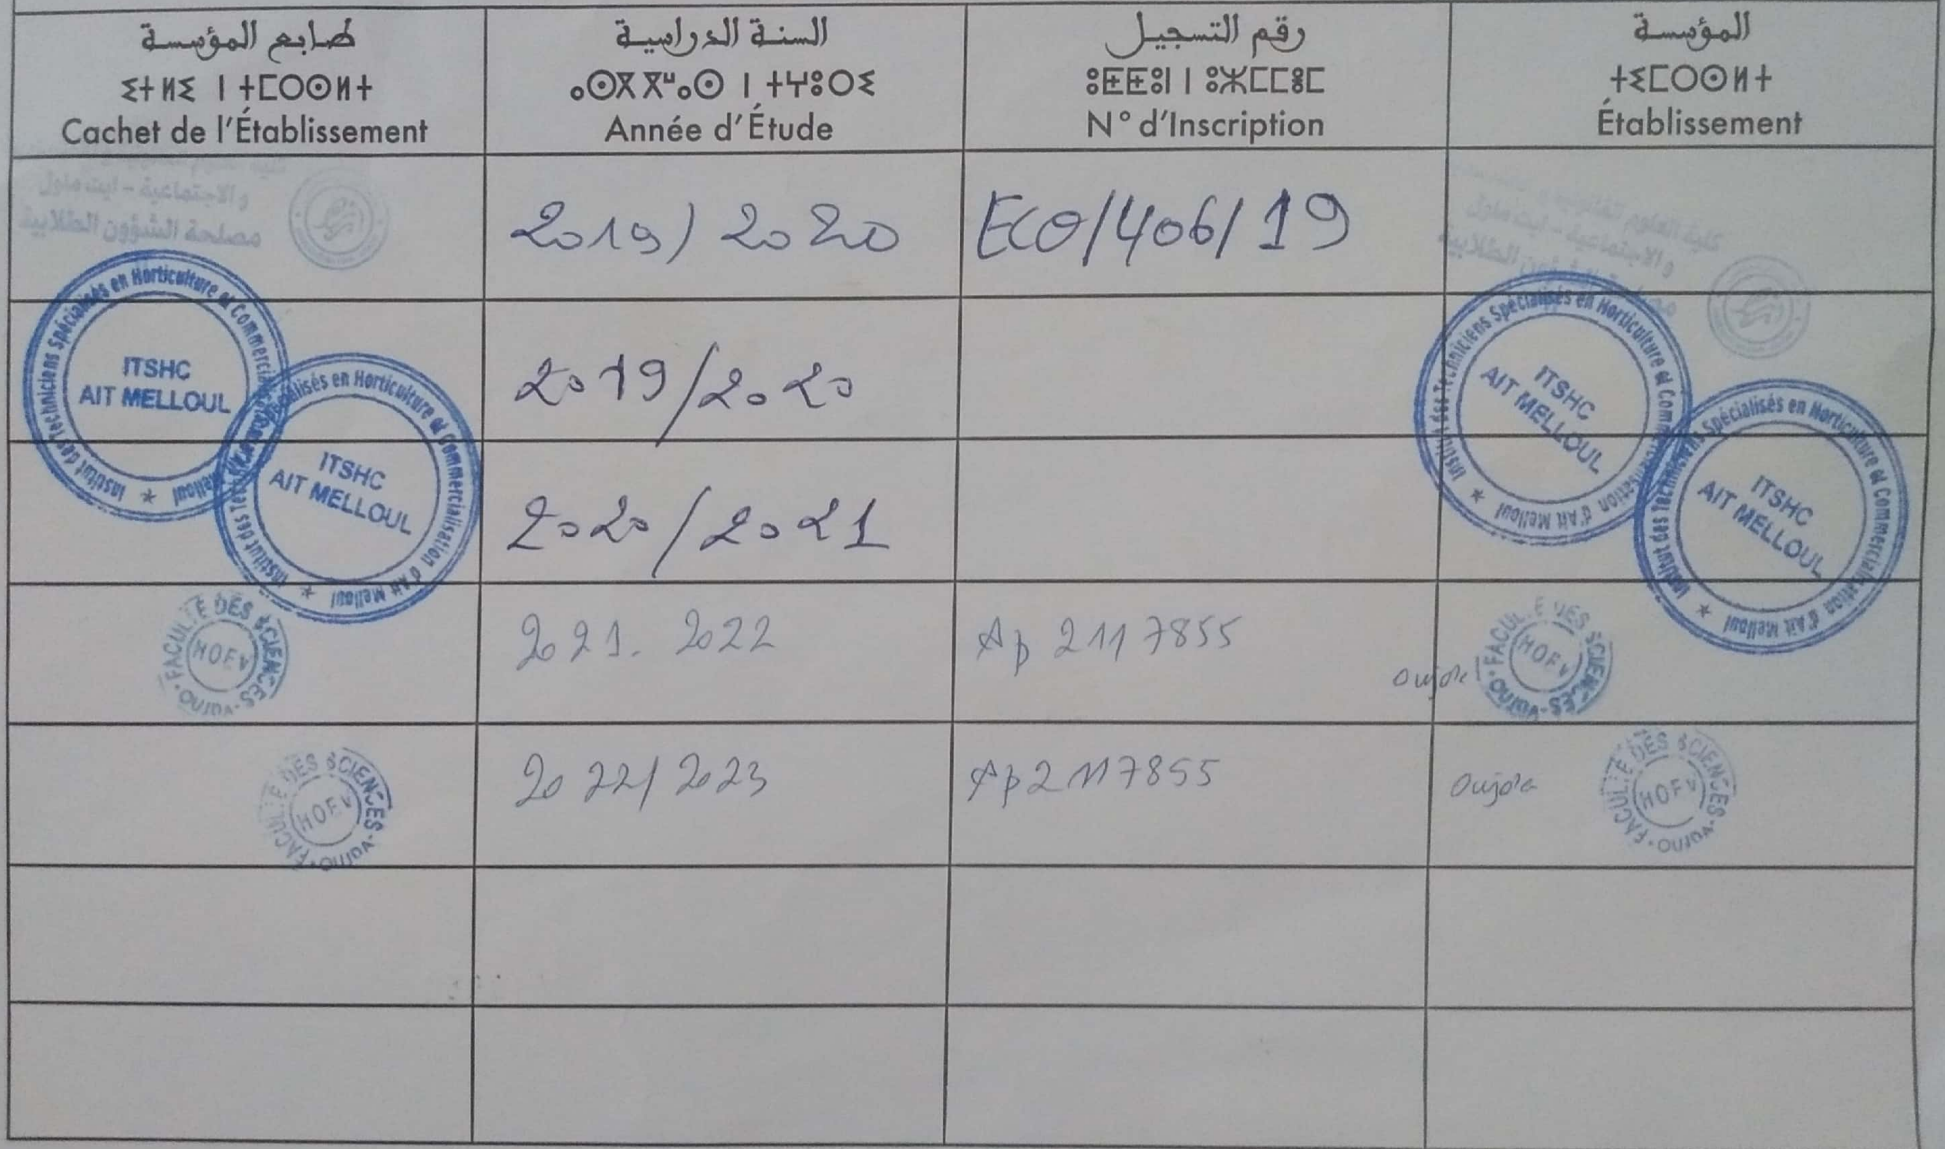 طابع المؤسسة
ⵉⵜⵍⵉ ⵏ ⵜⵎⵔⵙⵍⵜ
Cachet de l'Établissement
السنة الدراسية
ⴰⵙⴳⴳⵯⴰⵙ ⵏ ⵜⵖⵓⵔⵉ
Année d'Étude
رقم التسجيل
ⵓⵟⵟⵓⵏ ⵏ ⵓⵣⵎⵎⴻⵎ
N° d'Inscription
المؤسسة
ⵜⵉⵎⵔⵙⵍⵜ
Établissement
و الاجتماعية - ايت ملول
مصلحة الشؤون الطلابية
2019/2020
ECO/406/19
و الاجتماعية - ايت ملول
Institut des Techniciens Spécialisés en Horticulture et Commercialisation d'Ait Melloul
ITSHC
AIT MELLOUL
2019/2020
Institut des Techniciens Spécialisés en Horticulture et Commercialisation d'Ait Melloul
ITSHC
AIT MELLOUL
Institut des Techniciens Spécialisés en Horticulture et Commercialisation d'Ait Melloul
ITSHC
AIT MELLOUL
2020/2021
Institut des Techniciens Spécialisés en Horticulture et Commercialisation d'Ait Melloul
ITSHC
AIT MELLOUL
FACULTE DES SCIENCES-OUJDA
2021. 2022
Ap 2117855
Oujda
FACULTE DES SCIENCES-OUJDA
FACULTE DES SCIENCES-OUJDA
2022/2023
Ap2117855
Oujda
FACULTE DES SCIENCES-OUJDA